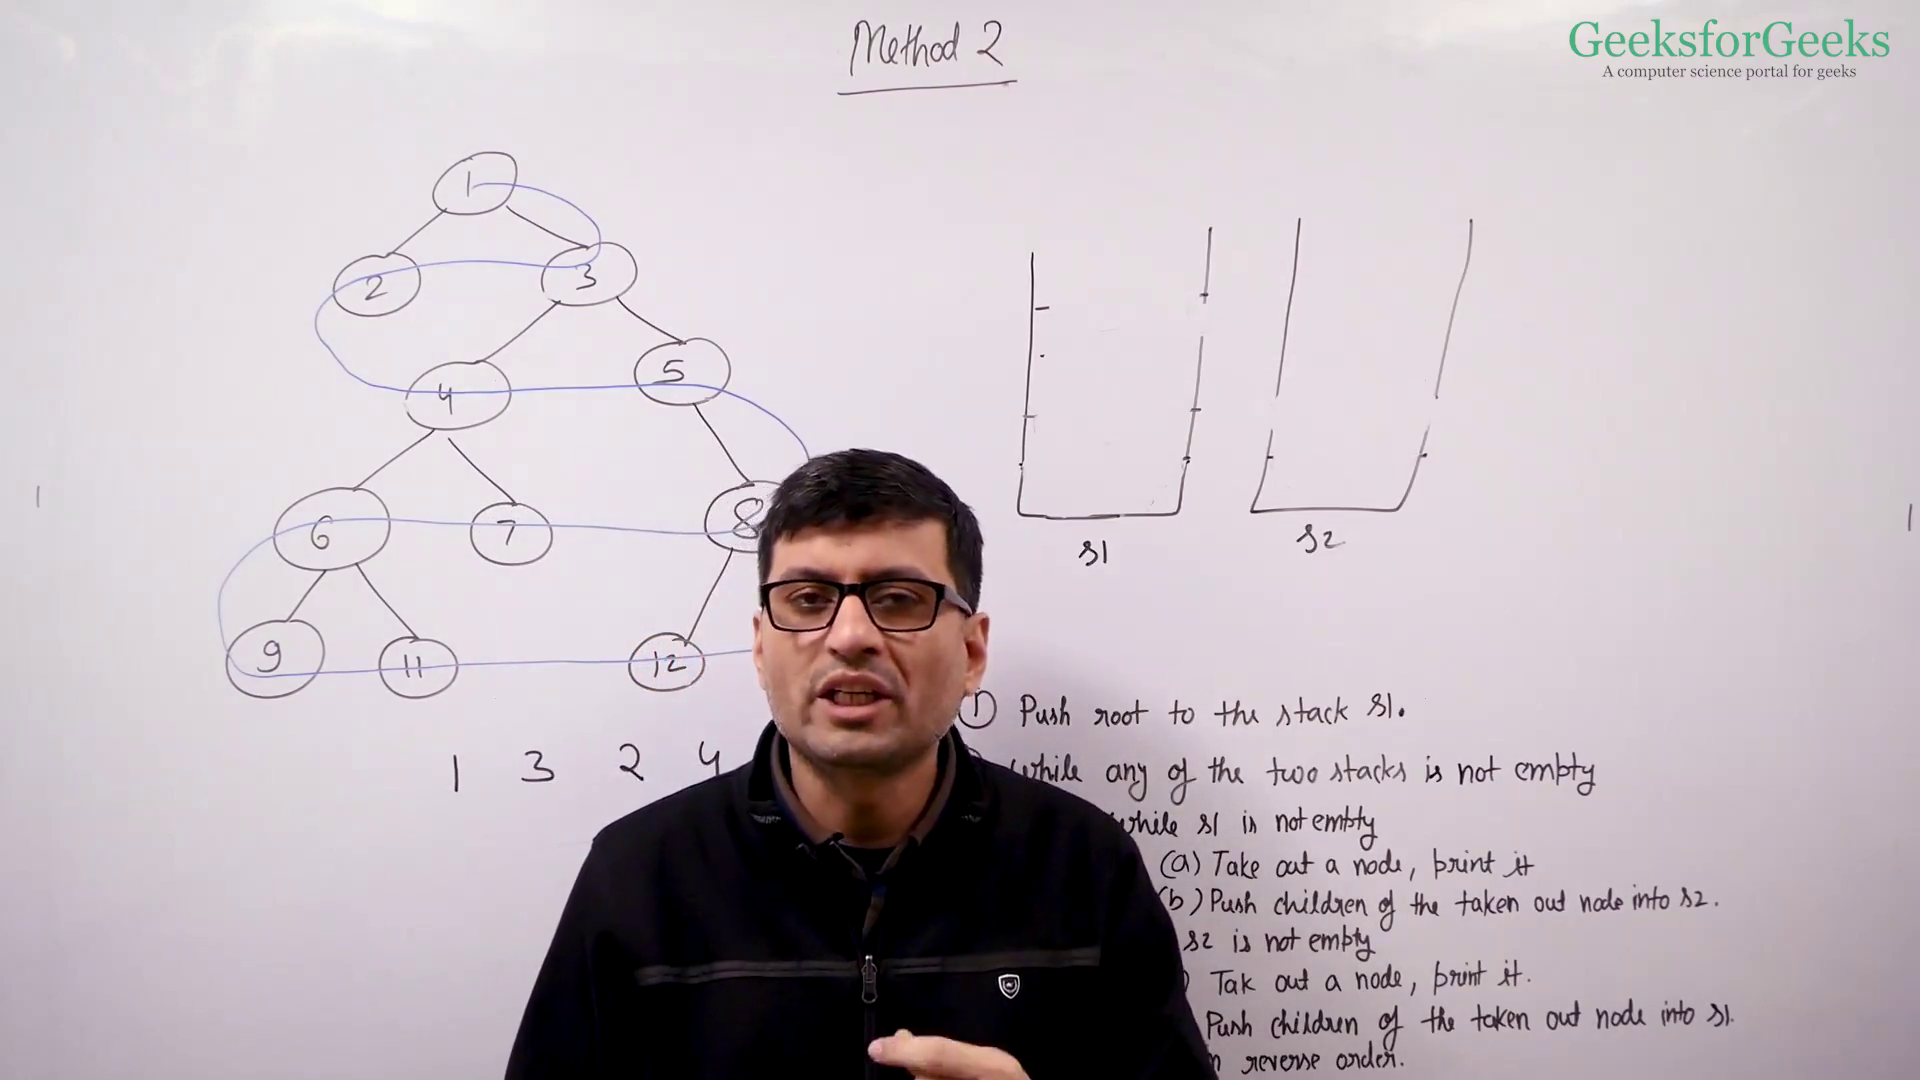 GeeksforGeeks
A computer science portal for geeks
Method 2
1
2 3
4 5
6 7 8
9 11 12
s1 s2
1 3 2 4
1 Push root to the stack s1.
while any of the two stacks is not empty
while s1 is not empty
(a) Take out a node, print it
(b) Push children of the taken out node into s2.
s2 is not empty
Tak out a node, print it.
Push children of the taken out node into s1
reverse order.